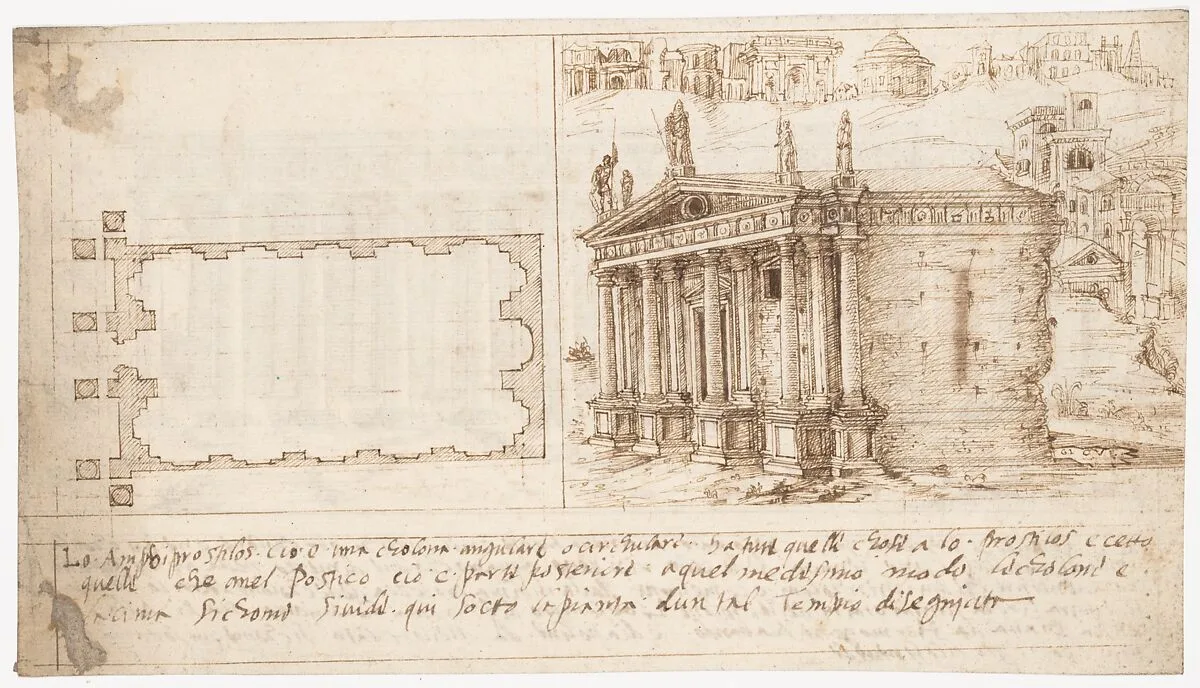 GIOVE
Lo Amphiprostilos cio e una cholona angulare o circhulare ha tute quelle chose a lo prostilos ecetto
quelle che anel Postico cio e parte posteriore a quel medesimo modo le cholone e
cima sichome si vide qui socto la pianta dun tal Tempio disegniata